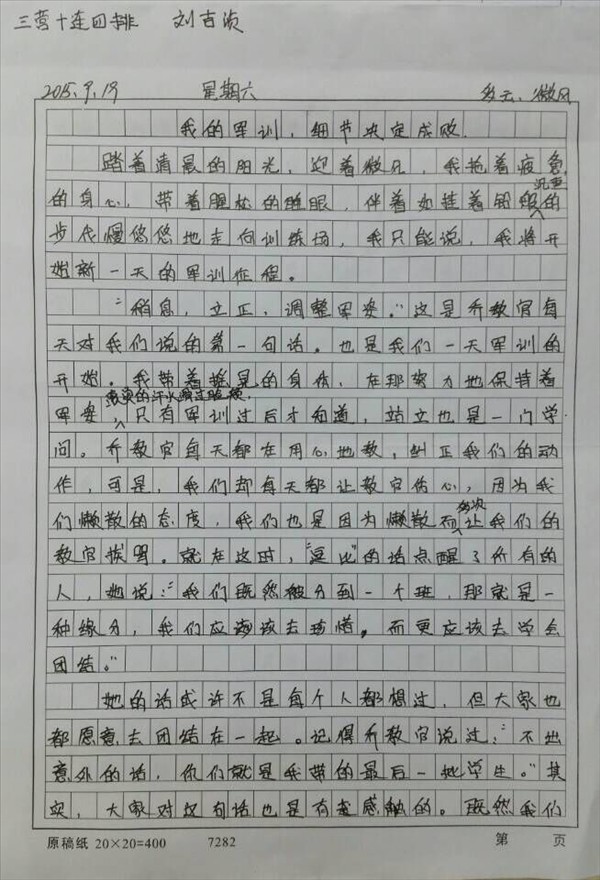 三营十连四排 刘吉祯
2015.9.19 星期六 多云、微风
我的军训，细节决定成败.
踏着清晨的阳光，迎着微风，我拖着疲惫
的身心，带着腥松的睡眼，伴着如挂着铅般沉重的
步伐慢悠悠地走向训练场，我只能说，我将开
始新一天的军训征程。
“稍息，立正，调整军姿。”这是乔教官每
天对我们说的第一句话。也是我们一天军训的
开始。我带着摇晃的身体，在那努力地保持着
军姿，滚烫的汗水滑过脸颊.只有军训过后才知道，站立也是一门学
问。乔教官每天都在用心地教，纠正我们的动
作，可是，我们却每天都让教官伤心，因为我
们懒散的态度，我们也是因为懒散而多次让我们的
教官挨骂。就在这时，“逗比”的话点醒了所有的
人，她说：“我们既然被分到一个班，那就是一
种缘分，我们应该该去珍惜。而更应该去学会
团结。”
她的话或许不是每个人都想过，但大家也
都愿意去团结在一起。记得乔教官说过：“不出
意外的话，你们就是我带的最后一批学生。”其
实，大家对这句话也是有些感触的。既然我们
原稿纸 20×20=400 7282 第 页